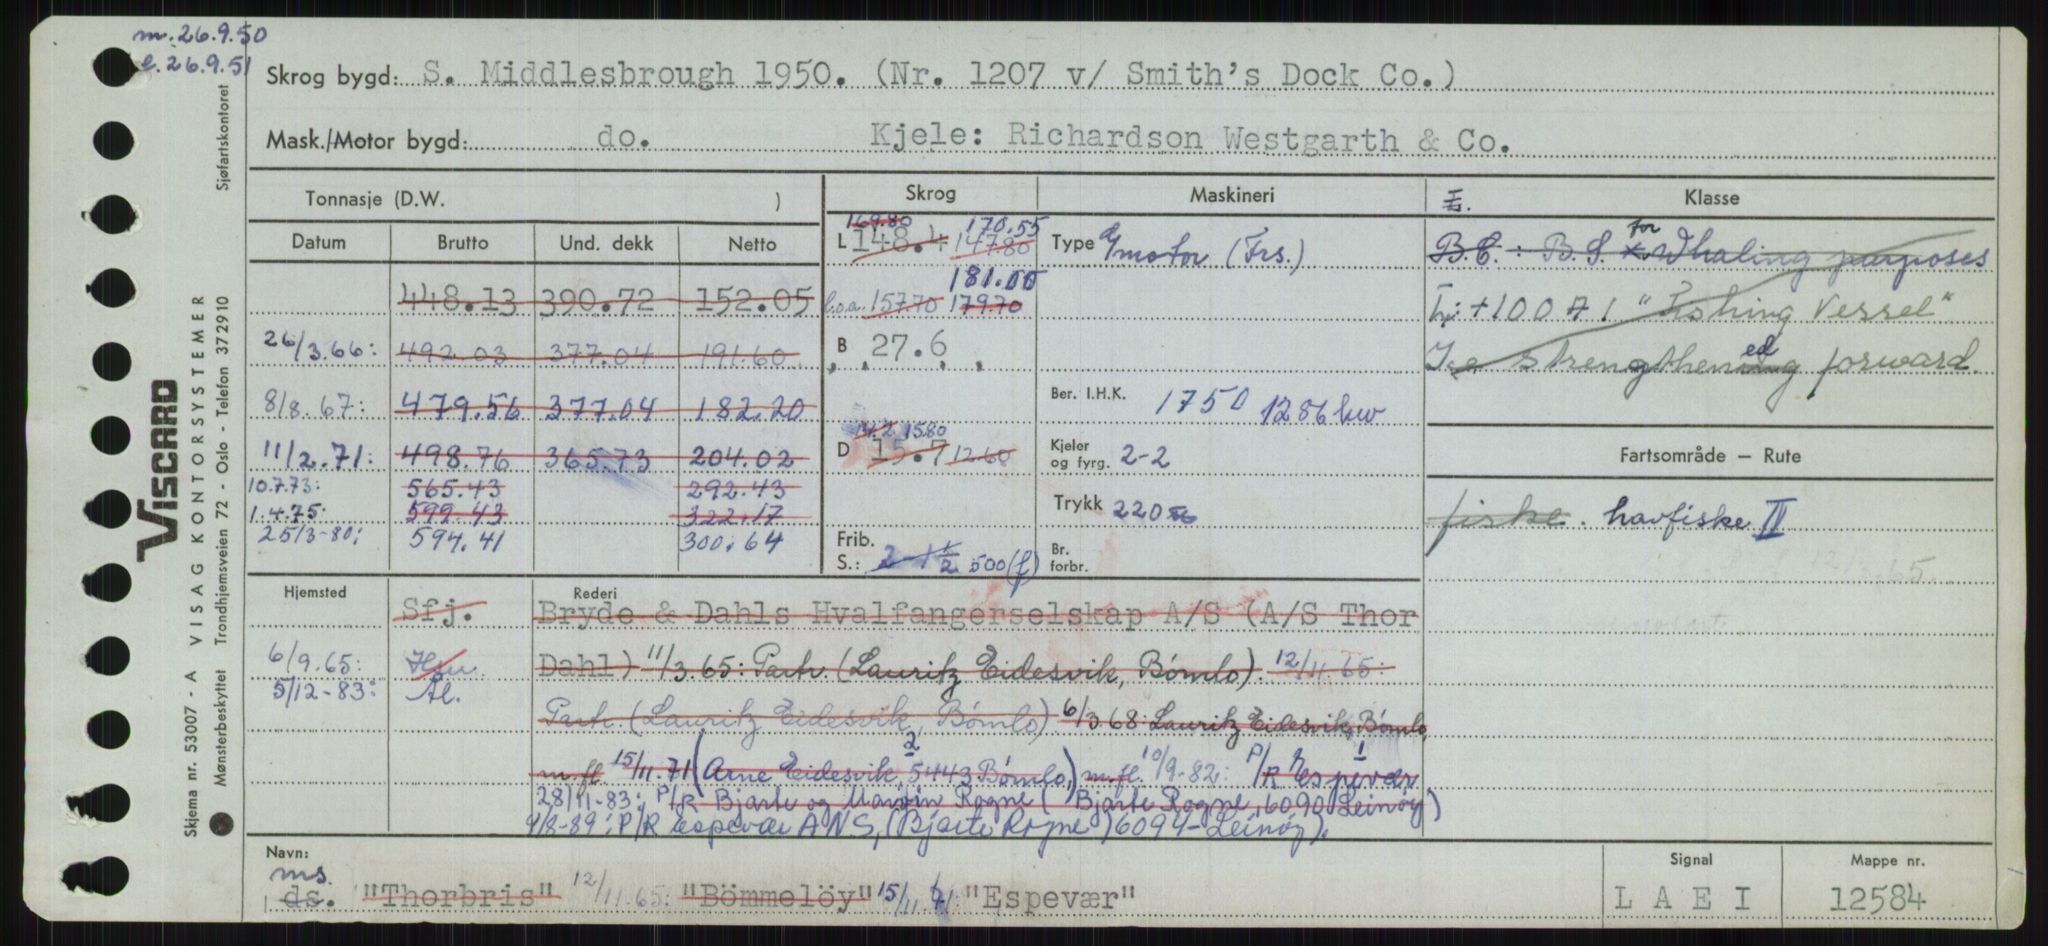 m. 26.9.50
e. 26.9.51
Skrog bygd: S. Middlesbrough 1950. (Nr. 1207 v/ Smith's Dock Co.)
Mask./Motor bygd: do. Kjele: Richardson Westgarth & Co.
Tonnasje (D.W. ) Skrog Maskineri I. Klasse
Datum Brutto Und. dekk Netto
448.13 390.72 152.05
26/3.66: 492.03 377.04 191.60
8/8.67: 479.56 377.04 182.20
11/2.71: 498.76 365.73 204.02
10.7.73: 565.43 292.43
1.4.75: 599.43 322.17
25/3-80: 594.41 300.64
169.80 170.55
L 148.4 147.80
181.00
l.o.a. 157.70 179.70
B 27.6
14.2 15.80
D 15.7 12.60
Frib.
S.: 2-1 1/2 500 (f)
Type motor (Frs.)
Ber. I.H.K. 1750 1286 kw
Kjeler og fyrg. 2-2
Trykk 220
Br. forbr.
for
B.C.: B.S. Whaling purposes
+100 A1 "Fishing Vessel"
Ice strengthened forward.
Fartsområde — Rute
fiske. havfiske II
12/3.65.
Hjemsted Rederi
Sfj. Bryde & Dahls Hvalfangerselskap A/S (A/S Thor
6/9.65: Hsu. Dahl) 11/3.65: Partr. (Lauritz Eidesvik, Bømlo). 12/11.65:
5/12-83: Ål.
Partr. (Lauritz Eidesvik, Bømlo) 6/3 68: Lauritz Eidesvik, Bømlo,
m.fl. 15/11.71 (Arne Eidesvik, 5443 Bømlo,) m.fl. 10/9-82: P/R Espevær
28/11-83: P/R Bjarte og Marvin Rogne (Bjarte Rogne, 6090 Leinøy)
4/8-89: P/R Espevær ANS, (Bjarte Rogne) 6094 - Leinøy).
Navn: Signal Mappe nr.
ms.
ds. "Thorbris" 12/11.65: "Bömmelöy" 15/11.71: "Espevær" LAEI 12584
VISCARD
VISAG KONTORSYSTEMER
Skjema nr. 53007 - A
Mønsterbeskyttet Trondhjemsveien 72 - Oslo - Telefon 372910 Sjøfartskontoret